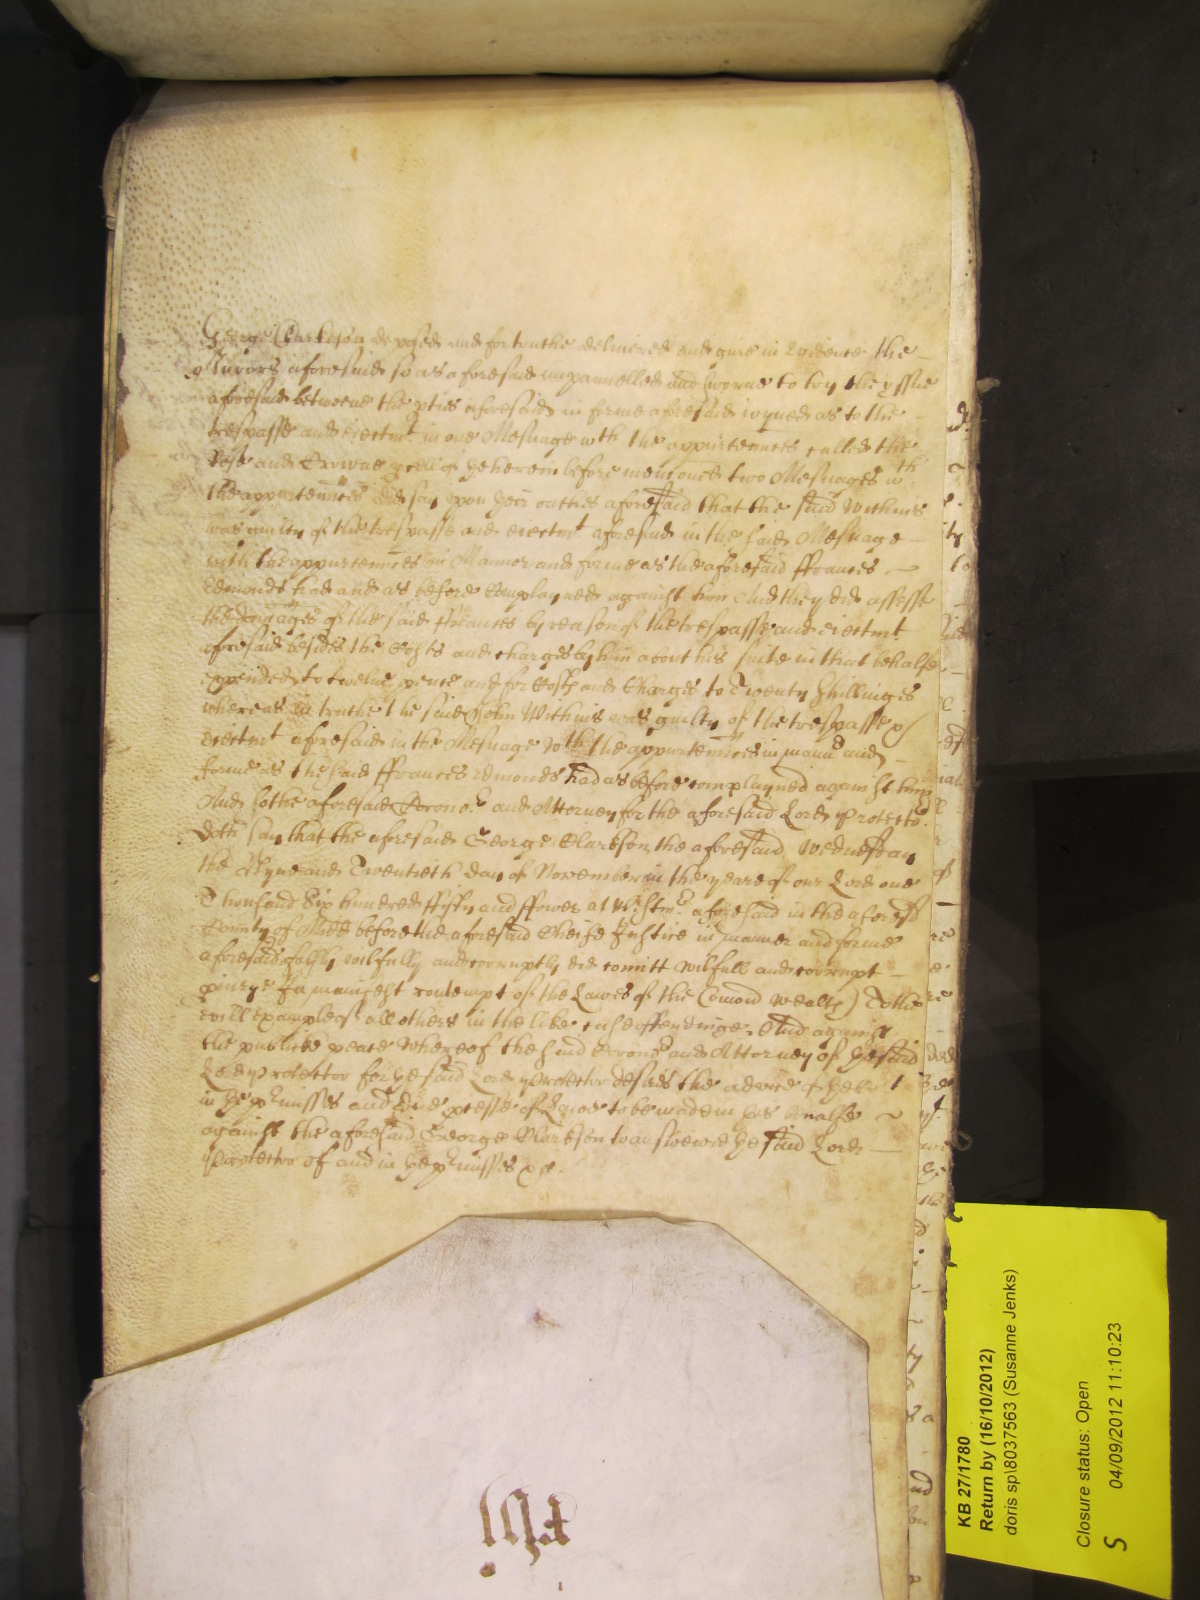 George Clarkson deposed and for truthe delivered and gave in Evidence the
Jurors aforesaid so as aforesaid impannelled and sworne to try the yssue
aforesaid betweene the pties aforesaid in forme aforesaid ioyned as to the
trespasse and eiectmt in one Mesuage wth the appurtennces called the
Rose and Crowne pcell of before mencioned two Mesuages wth
the appurtennces did say upon their oathes aforesaid that the said Withins
was guilty of the trespasse and eiectmt aforesaid in the said Mesuage
with the appurtennces in Manner and forme as the aforesaid ffrances
Edmonds had and as before Complayned against him And they did assesse
the damages of the said ffrances by reason of the trespasse and eiectmt
aforesaid besides the Costs and charges by him about his suite in that behalfe
expended to twelve pence and for Costs and Charges to Twenty shillinges
whereas in truthe the said John Withins was guilty of the trespasse &
Eiectmt aforesaid in the Mesuage wth the appurtennces in manner and
forme as the said ffrances Edmonds had as before complayned against him
And so the aforesaid Coroner and Attorney for the aforesaid Lord Protector
doth say that the aforesaid George Clarkson the aforesaid Wednesday
the Nyne and Twentieth day of November in the yeare of our Lord one
Thousand Six hundred ffifty and ffower at Westmr aforesaid in the aforesd
County of Midd before the aforesaid Cheife Justice in manner and forme
aforesaid falsly wilfully and corruptly did comitt wilfull and corrupt
piurye In manifest contempt of the Lawes of this Comon Wealth To the
evill example of all others in the like case offendinge. And against
the publicke peace Whereof the said Coroner and Attorney of the said
Lord Protector for the said Lord Protector desires the advice of the Court
in the pmisses and due pcesse of Lawe to be made in his behalfe
against the aforesaid George Clarkson to answere the said Lord
Protector of and in the pmisses &c.
KB 27/1780
Return by (16/10/2012)
doris sp\8037563 (Susanne Jenks)
Closure status: Open
04/09/2012 11:10:23
S